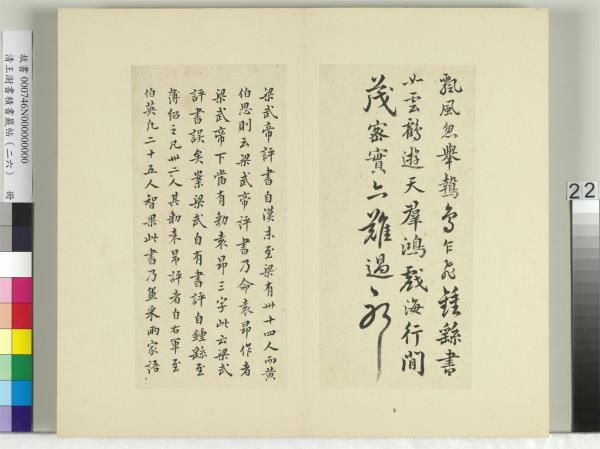 飄風忽舉鷙鳥乍飛鍾繇書
如雲鶴遊天羣鴻戲海行間
茂密實亦難過耶
梁武帝評書自漢末至梁有卅十四人而黃
伯思則云梁武帝評書乃命袁昂作者
梁武帝下當有勅袁昂三字此云梁武
評書誤矣業梁武自有書評自鍾繇至
薄紹之凡卅二人其勅袁昂評者自右軍至
伯英凡二十五人智果此書乃並采兩家語
22
故書000746N000000000
清王澍書積書巖帖(二六) 冊